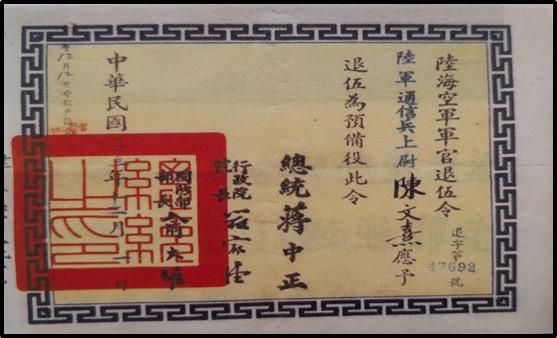 陸海空軍軍官退伍令
退字第
47692
號
陸軍通信兵上尉陳文熹應予
退伍為預備役此令
總統蔣中正
行政院
院長
國防部
部長俞大維
中華民國三年十二月一日